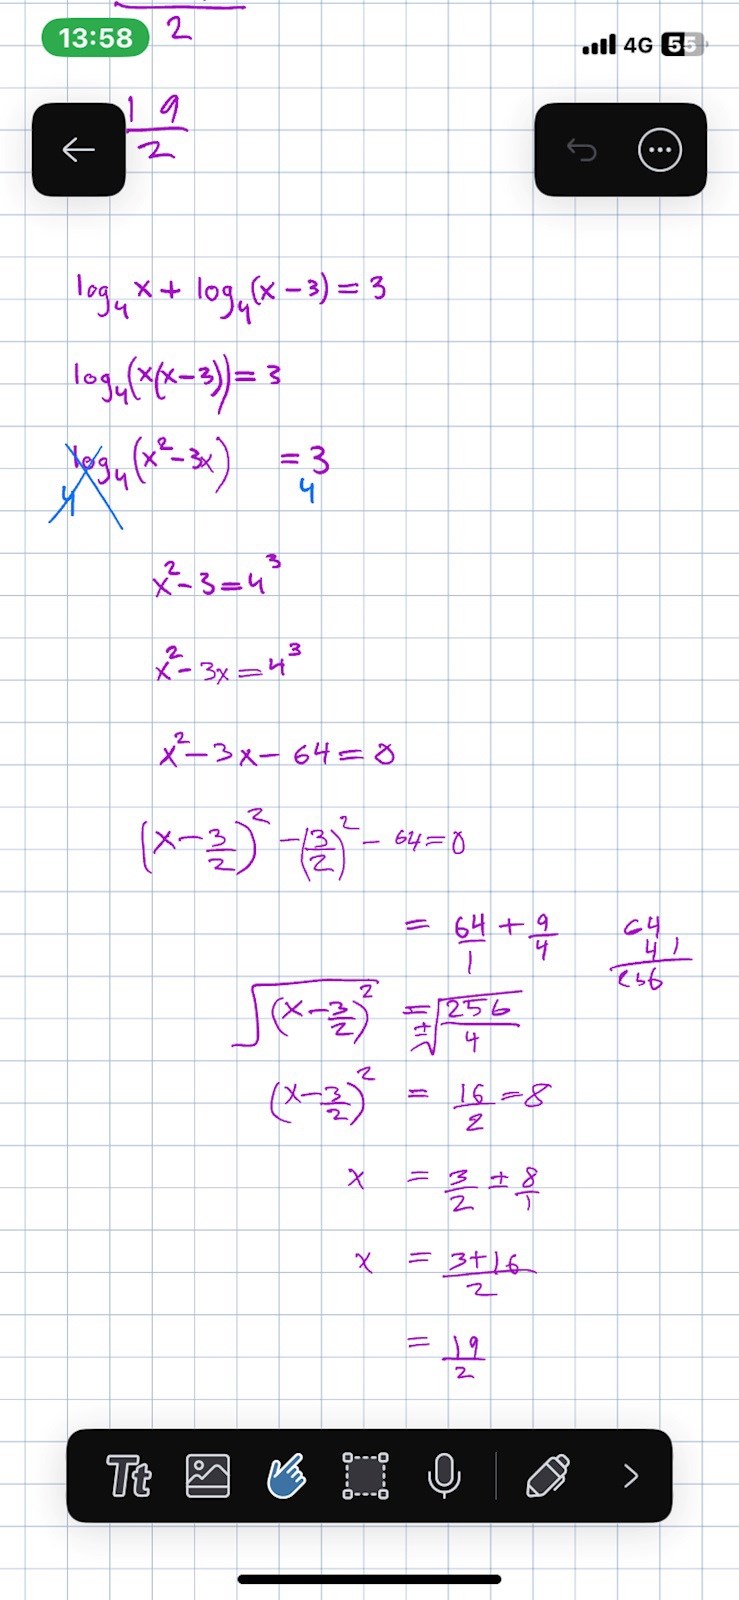 2
13:58
4G 55
19/2
log₄ x + log₄(x − 3) = 3
log₄(x(x − 3)) = 3
log₄(x² − 3x) = 3
4 4
x² − 3 = 4³
x² − 3x = 4³
x² − 3x − 64 = 0
(x − 3/2)² − (3/2)² − 64 = 0
= 64/1 + 9/4
64
41
256
√(x − 3/2)² = ±√256/4
(x − 3/2)² = 16/2 = 8
x = 3/2 ± 8/1
x = 3+16/2
= 19/2
Tt